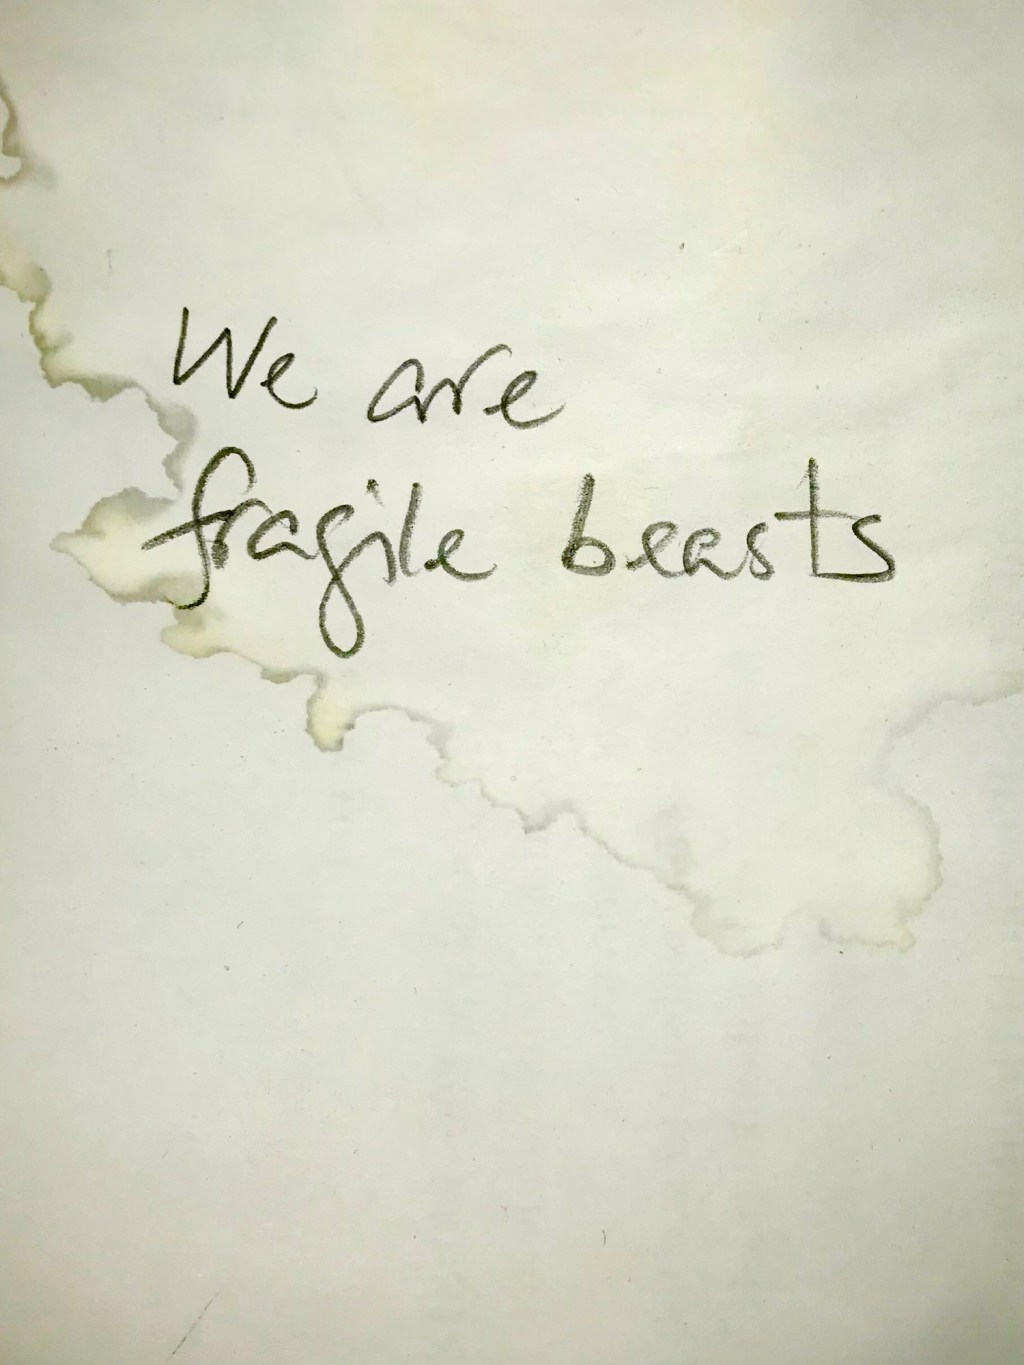 We are
fragile beasts